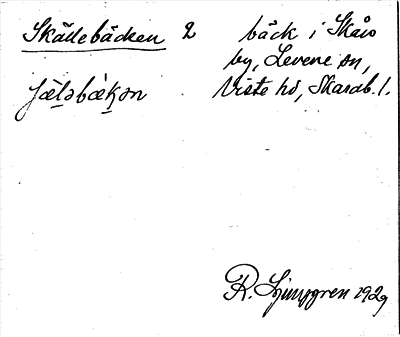 Skädebäcken 2 bäck i Skårs
by, Levene sn,
Viste hd, Skarab. l.
R. Ljunggren 1929